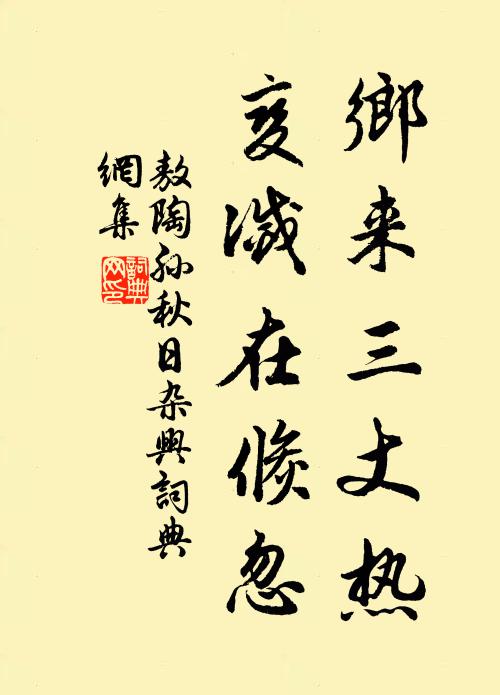 鄉来三丈热
变滅在倏忽
敖陶孙秋日杂興詞典
網集
詞典
网印